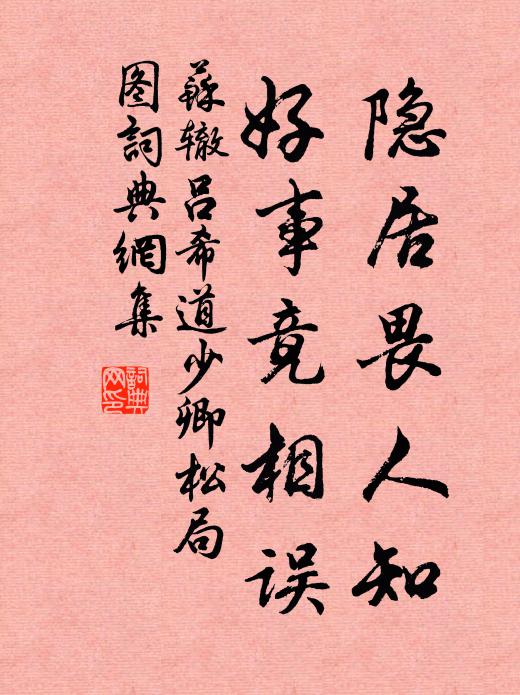 隐居畏人知
好事竟相误
蘇辙吕希道少卿松局
图詞典網集
詞典网印